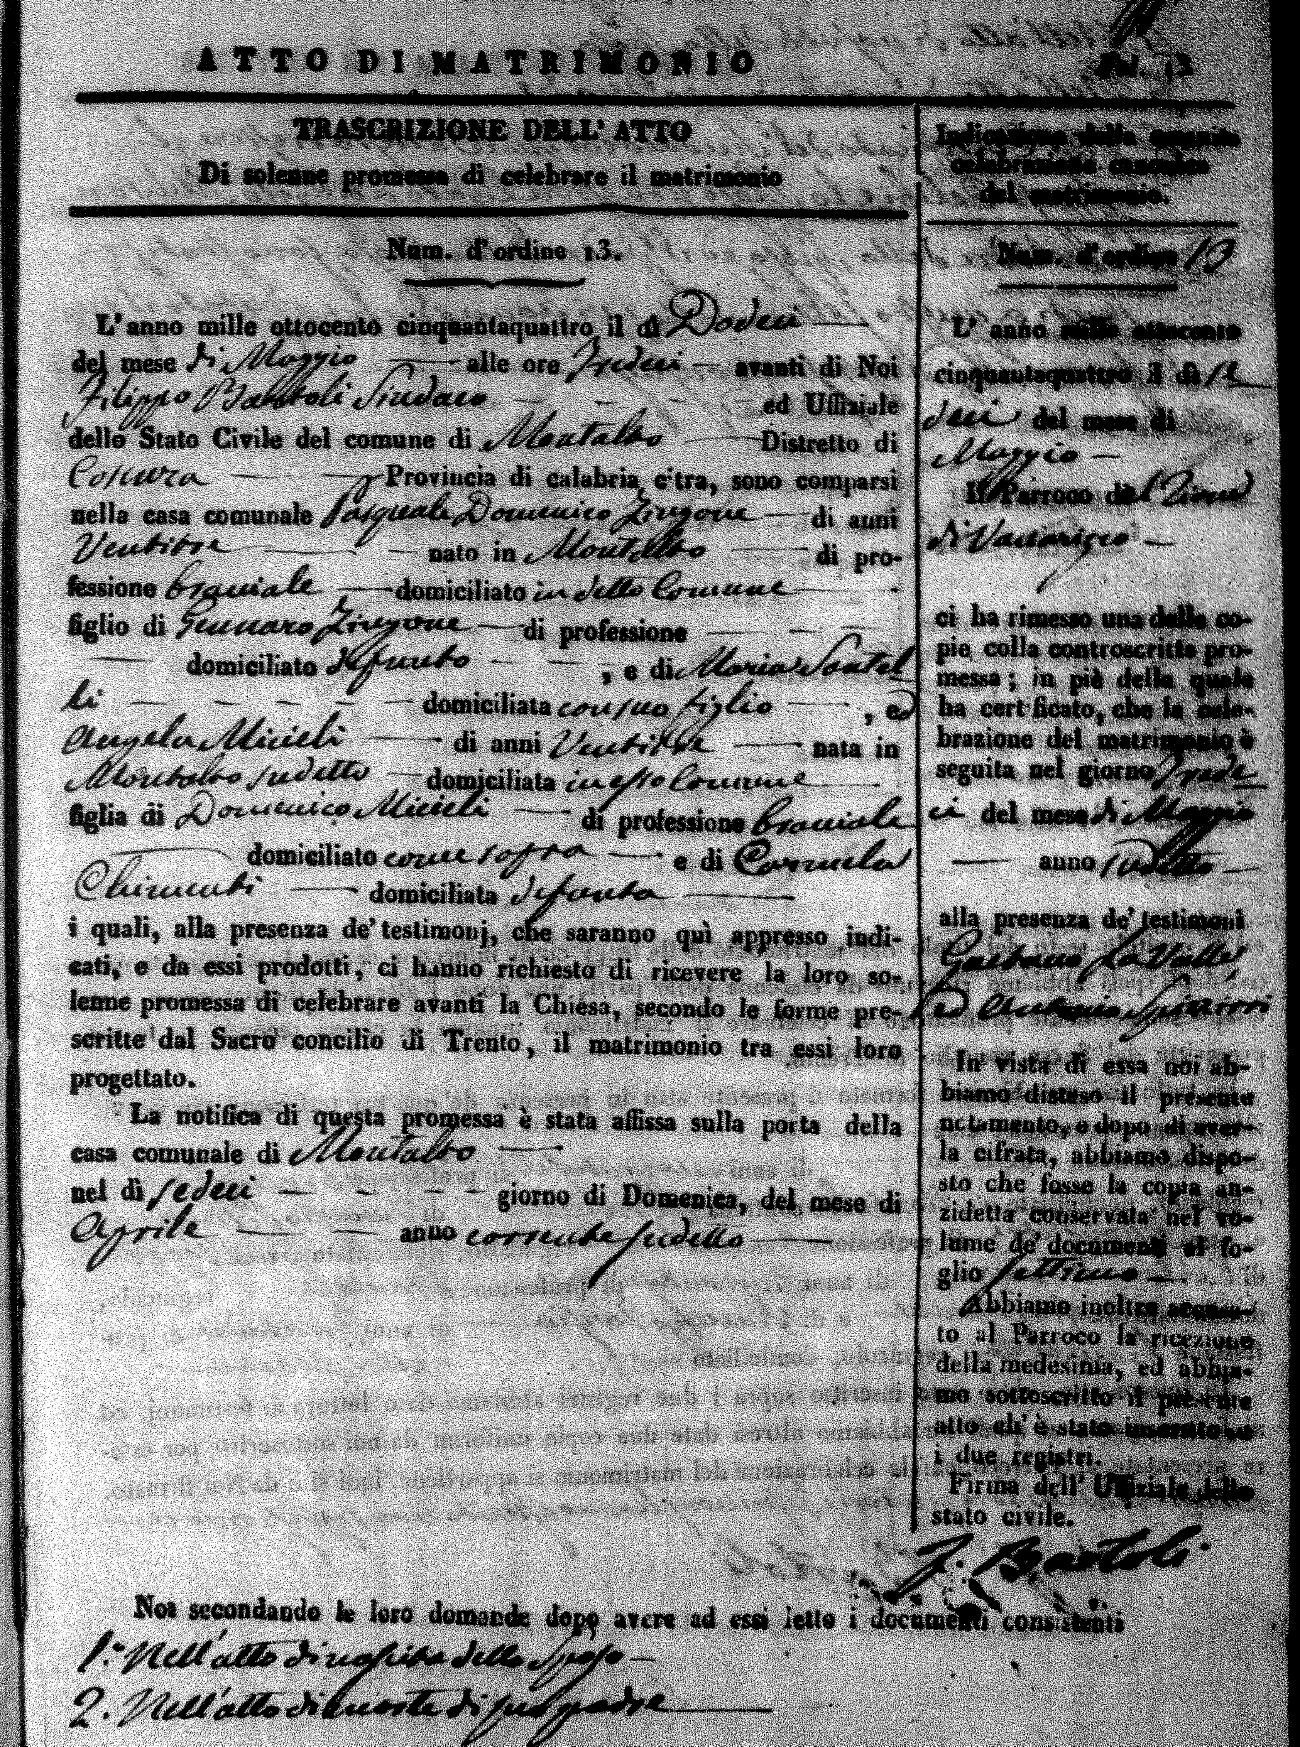 ATTO DI MATRIMONIO
Fol. 13
TRASCRIZIONE DELL' ATTO
Di solenne promessa di celebrare il matrimonio
Num. d' ordine 13.
L' anno mille ottocento cinquantaquattro il dì Dodeci
del mese di Maggio alle ore Tredeci avanti di Noi
Filippo Bartoli Sindaco ed Uffiziale
dello Stato Civile del comune di Montalto Distretto di
Cosenza Provincia di calabria citra, sono comparsi
nella casa comunale Pasquale Domenico Zingone di anni
Ventitre nato in Montalto di pro-
fessione braciale domiciliato in detto Comune
figlio di Gennaro Zingone di professione
domiciliato defunto , e di Maria Santel
li domiciliata con suo figlio , ed
Angela Micieli di anni Ventitre nata in
Montalto sudetto domiciliata in esso Comune
figlia di Domenico Micieli di professione braciale
domiciliato come sopra e di Carmela
Chimenti domiciliata defonta
i quali, alla presenza de' testimonj, che saranno quì appresso indi-
cati, e da essi prodotti, ci hanno richiesto di ricevere la loro so-
lenne promessa di celebrare avanti la Chiesa, secondo le forme pre-
scritte dal Sacro concilio di Trento, il matrimonio tra essi loro
progettato.
La notifica di questa promessa è stata affissa sulla porta della
casa comunale di Montalto
nel dì sedeci giorno di Domenica, del mese di
Aprile anno corrente sudetto
Indicazione della seguita
celebrazione canonica
del matrimonio.
Num. d' ordine 13
L' anno mille ottocento
cinquantaquattro il dì
deci del mese di
Maggio
Il Parroco di
di Vaccarizzo
ci ha rimesso una delle co-
pie colla controscritta pro-
messa; in piè della quale
ha certificato, che la cele-
brazione del matrimonio è
seguita nel giorno Trede
ci del mese di Maggio
anno sudetto
alla presenza de' testimoni
Gaetano La Valle,
ed Antonio
In vista di essa noi ab-
biamo disteso il presente
notamento, e dopo di aver-
la cifrata, abbiamo dispo-
sto che fosse la copia an-
zidetta conservata nel vo-
lume de' documenti al fo-
glio settimo
Abbiamo inoltre accusa-
to al Parroco la ricezione
della medesima, ed abbia-
mo sottoscritto il presente
atto ch' è stato inscritto su
i due registri.
Firma dell' Uffiziale dello
stato civile.
F. Bartoli
Noi secondando le loro domande dopo avere ad essi letto i documenti consistenti
1.° Nell'atto di nascita dello Sposo
2. Nell'atto di morte di suo padre